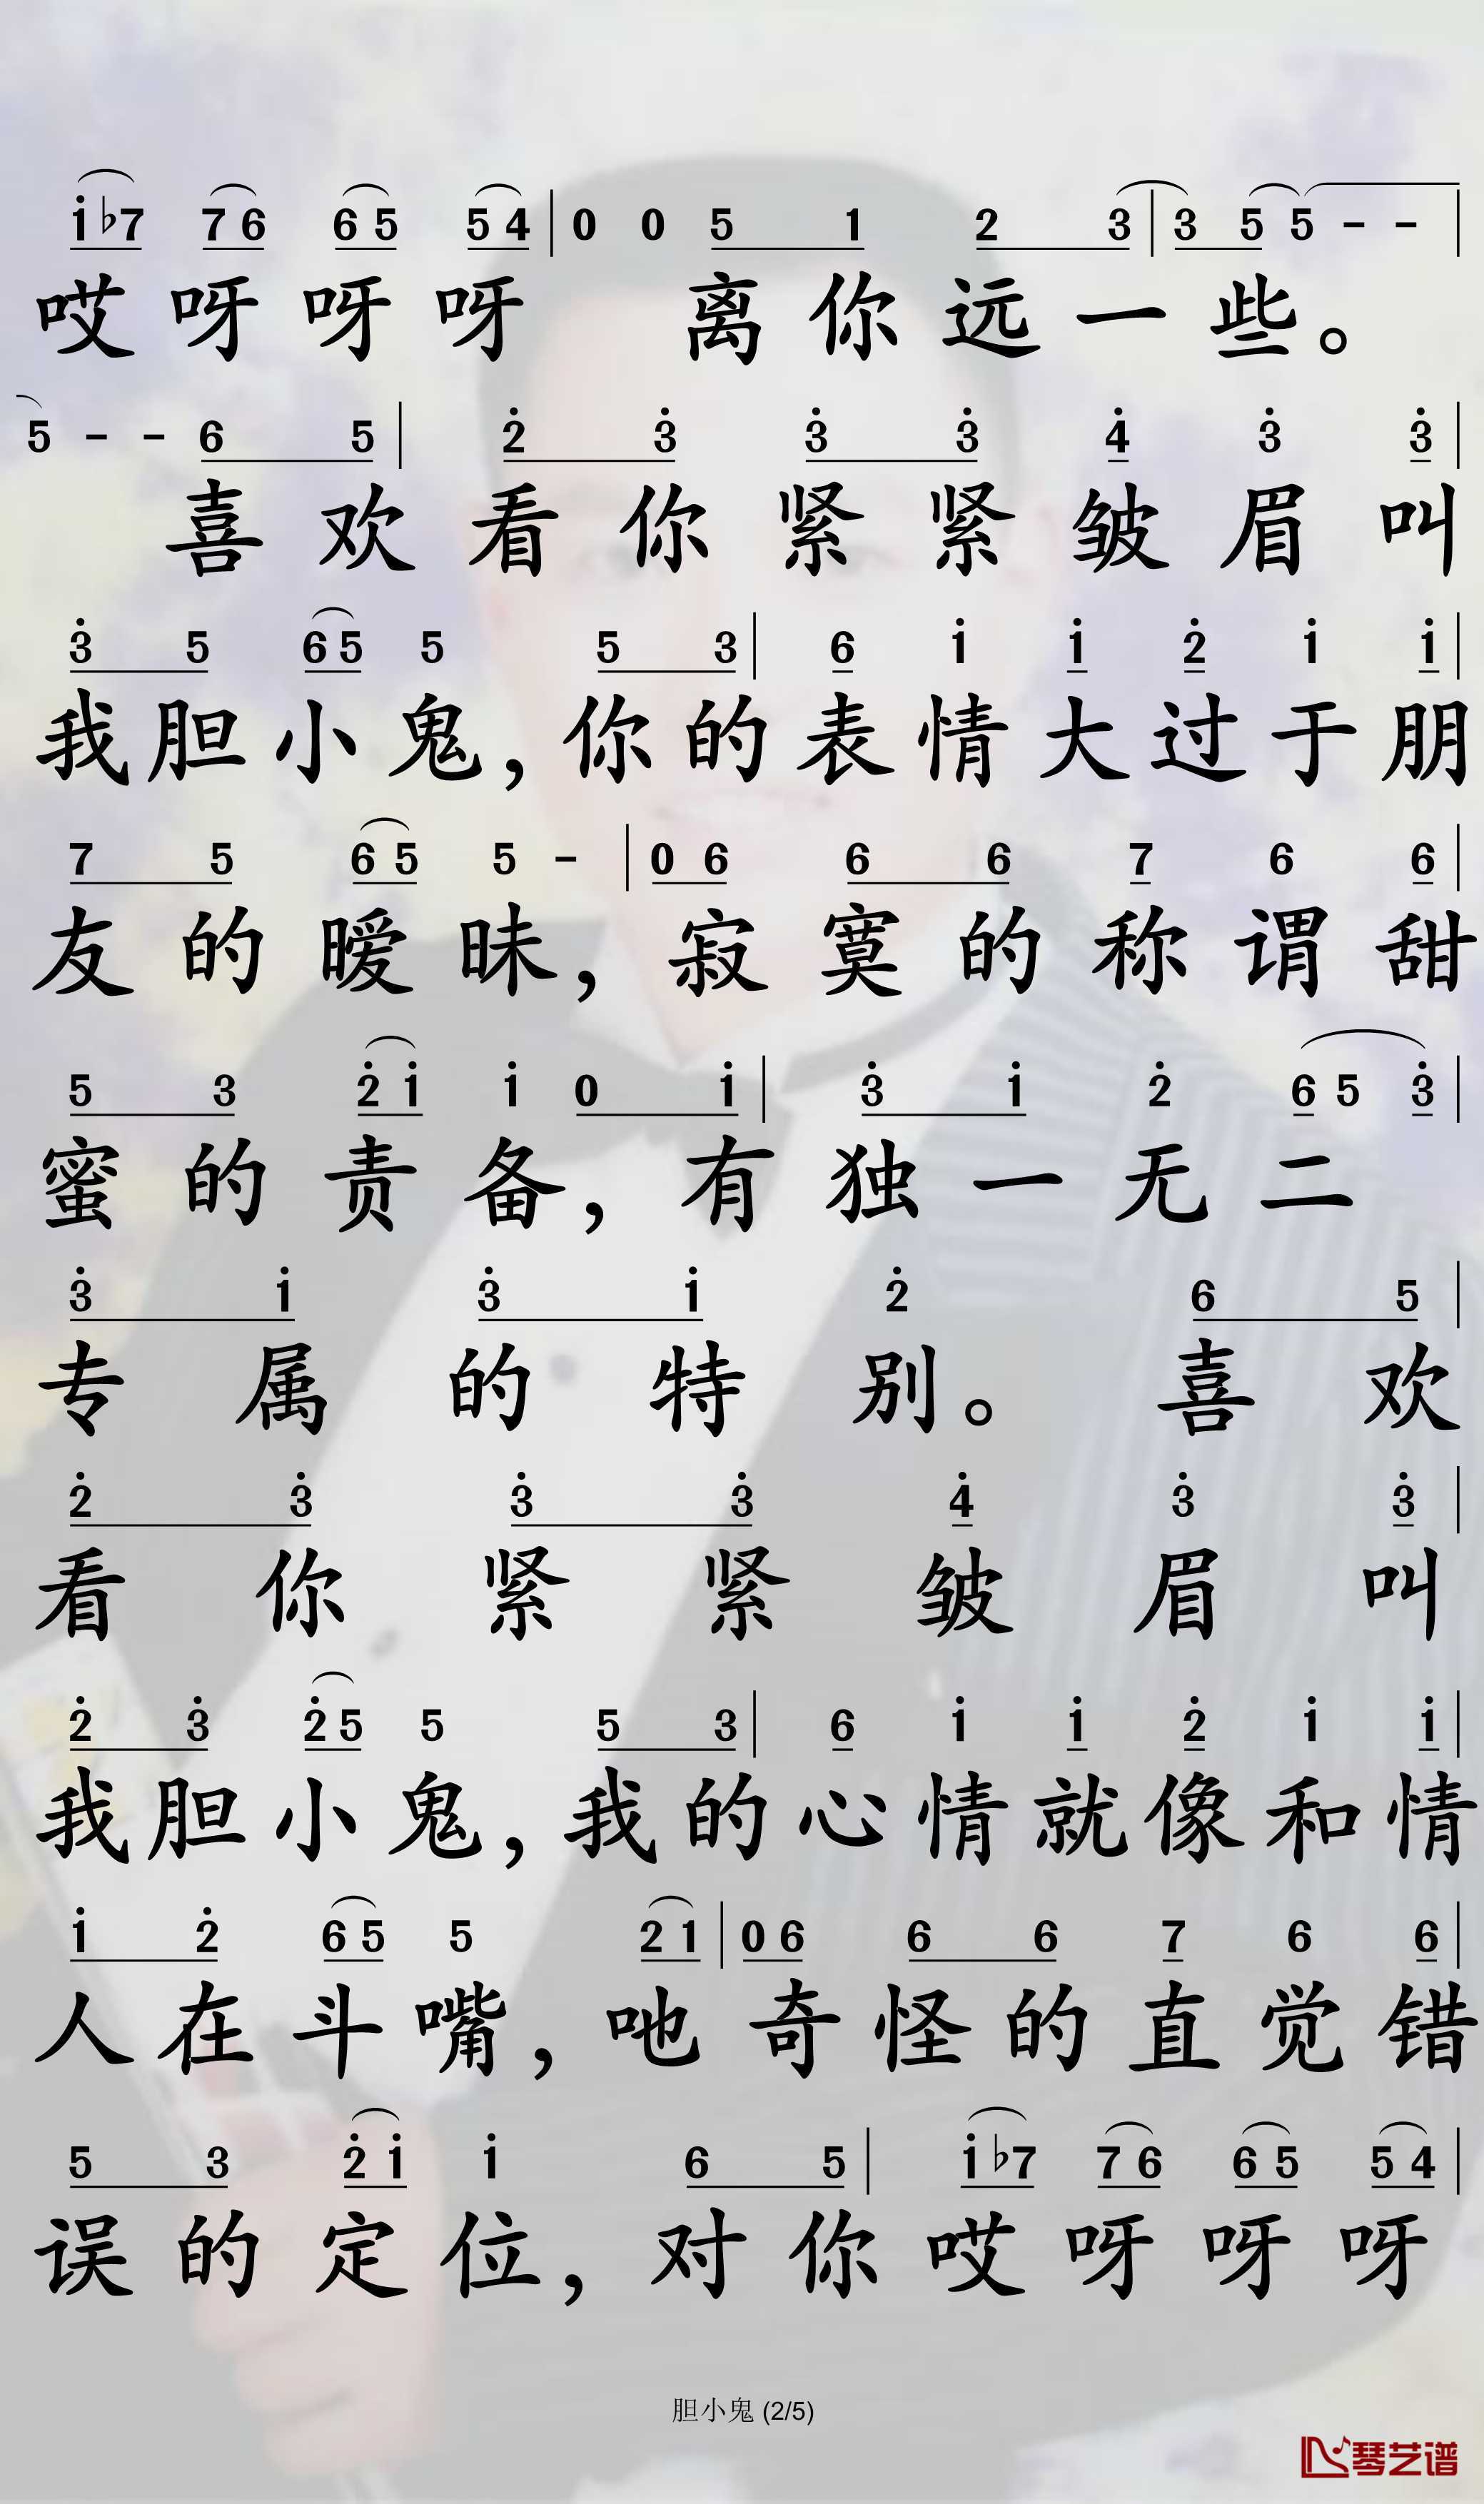 1 ♭7 7 6 6 5 5 4 | 0 0 5 1 2 3 | 3 5 5 - - |
哎 呀 呀 呀 离 你 远 一 些。
5 - - 6 5 | 2 3 3 3 4 3 3 |
喜 欢 看 你 紧 紧 皱 眉 叫
3 5 6 5 5 5 3 | 6 1 1 2 1 1 |
我 胆 小 鬼, 你 的 表 情 大 过 于 朋
7 5 6 5 5 - | 0 6 6 6 7 6 6 |
友 的 暧 昧, 寂 寞 的 称 谓 甜
5 3 2 1 1 0 1 | 3 1 2 6 5 3 |
蜜 的 责 备, 有 独 一 无 二
3 1 3 1 2 6 5 |
专 属 的 特 别。 喜 欢
2 3 3 3 4 3 3 |
看 你 紧 紧 皱 眉 叫
2 3 2 5 5 5 3 | 6 1 1 2 1 1 |
我 胆 小 鬼, 我 的 心 情 就 像 和 情
1 2 6 5 5 2 1 | 0 6 6 6 7 6 6 |
人 在 斗 嘴, 吔 奇 怪 的 直 觉 错
5 3 2 1 1 6 5 | 1 ♭7 7 6 6 5 5 4 |
误 的 定 位, 对 你 哎 呀 呀 呀
胆小鬼 (2/5)
琴艺谱